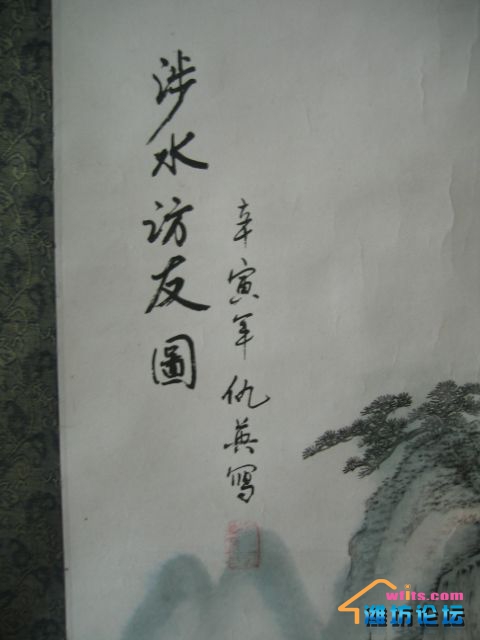 涉水访友圖
辛寅年仇英寫
wfits.com
潍坊论坛